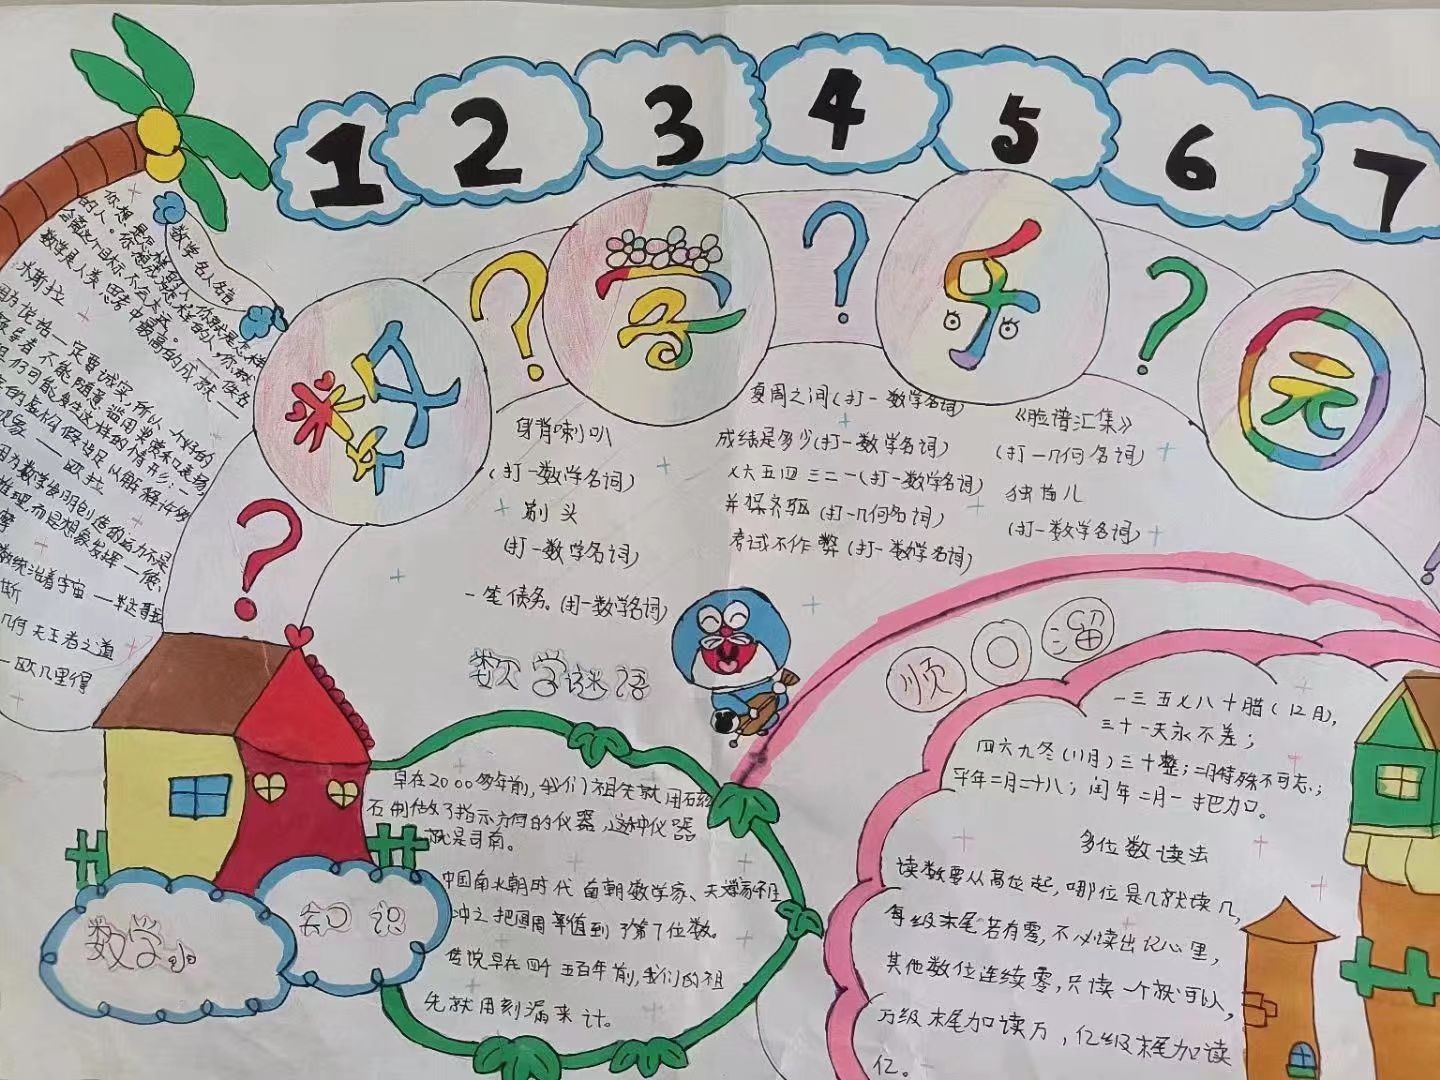 1 2 3 4 5 6 7
数学乐元
数学名人名言
身背喇叭
(打一数学名词)
剃头
(打一数学名词)
一笔债务。(打一数学名词)
夏周之间(打一数学名词)
成绩是多少(打一数学名词)
七六五四三二一(打一数学名词)
并探齐驱(打一几何名词)
考试不作弊(打一数学名词)
《脸谱汇集》
(打一几何名词)
独苗儿
(打一数学名词)
数学谜语
米斯拉
数学是人类思考中最高的成就——
因为说谎一定要诚实,所以一个好的
现象——欧拉
因为数学发明创造的动力不是
推理,而是想象发挥——德
摩
数统治着宇宙——毕达哥拉
斯
几何无王者之道
—欧几里得
数学小
知识
早在2000多年前,我们祖先就用磁
石制做了指示方向的仪器,这种仪器
就是司南。
中国南北朝时代南朝数学家、天
冲之把圆周率值到了第7位数。
传说早在四千五百年前,我们的祖
先就用刻漏来计。
顺口溜
一三五七八十腊(12月),
三十一天永不差;
四六九冬(11月)三十整;二月特殊不可忘;
平年二月二十八;闰年二月一把加。
多位数读法
读数要从高位起,哪位是几就读几,
每级末尾若有零,不必读出记心里,
其他数位连续零,只读一个就可以,
万级末尾加读万,亿级末尾加读
亿。